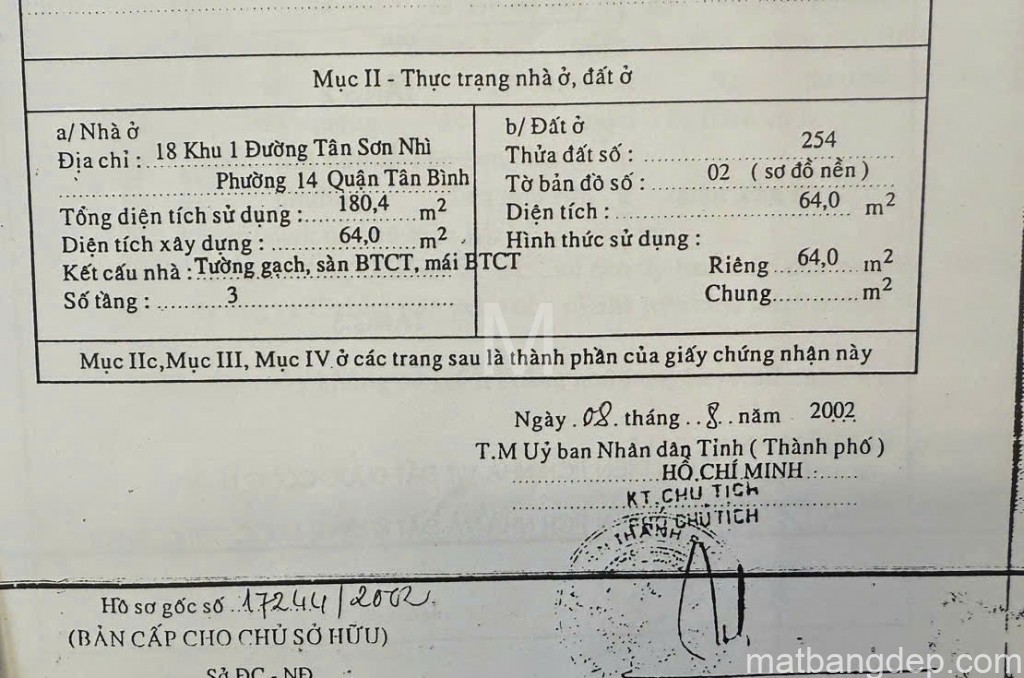 Mục II - Thực trạng nhà ở, đất ở
a/ Nhà ở
Địa chỉ : 18 Khu 1 Đường Tân Sơn Nhì
Phường 14 Quận Tân Bình
Tổng diện tích sử dụng : 180,4 m2
Diện tích xây dựng : 64,0 m2
Kết cấu nhà : Tường gạch, sàn BTCT, mái BTCT
Số tầng : 3
b/ Đất ở
Thửa đất số : 254
Tờ bản đồ số : 02 ( sơ đồ nền )
Diện tích : 64,0 m2
Hình thức sử dụng :
Riêng 64,0 m2
Chung m2
M
Mục IIc, Mục III, Mục IV ở các trang sau là thành phần của giấy chứng nhận này
Ngày 08 tháng 8 năm 2002
T.M Uỷ ban Nhân dân Tỉnh ( Thành phố )
HỒ CHÍ MINH
KT. CHỦ TỊCH
PHÓ CHỦ TỊCH
Hồ sơ gốc số 17244/2002
(BẢN CẤP CHO CHỦ SỞ HỮU)
Sở ĐC - NĐ
matbangdep.com